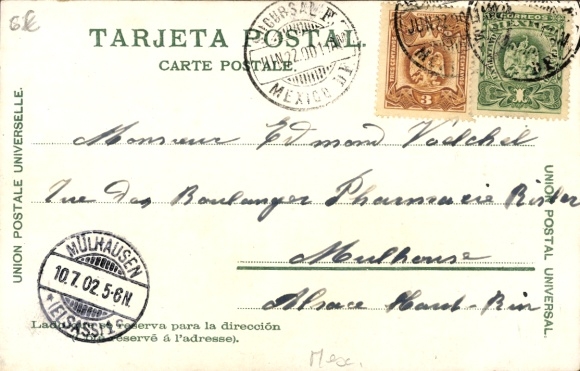 6k
TARJETA POSTAL.
CARTE POSTALE.
SUCURSAL
JUN 22 00
MEXICO D.F.
3
CORREOS
1
JUN 22
UNION POSTALE UNIVERSELLE.
UNION POSTAL UNIVERSAL.
Monsieur Edmond Voelckel
Rue des Boulanger Pharmacie Risler
Mulhouse
Alsace Haut-Rin
MÜLHAUSEN
10.7.02.5-6N.
* (ELSASS) 1 c
Lado que se reserva para la dirección
(Côté reservé á l'adresse).
Mex.